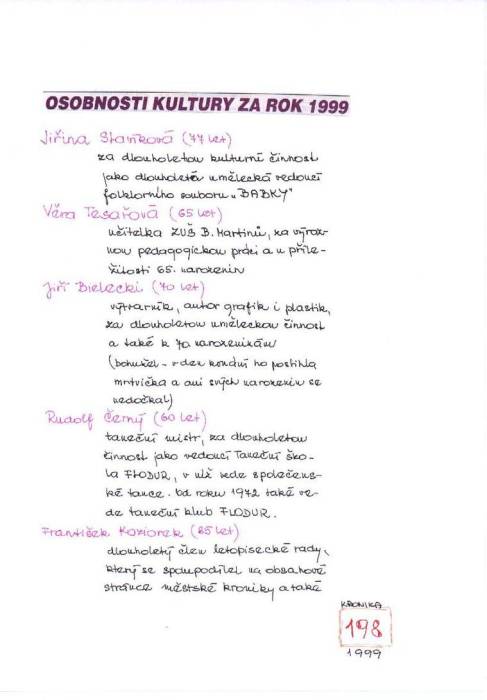 OSOBNOSTI KULTURY ZA ROK 1999
Jiřina Staňková (77 let)
za dlouholetou kulturní činnost
jako dlouholetá umělecká vedoucí
folklorního souboru „BABKY"
Věra Tesařová (65 let)
učitelka ZUŠ B. Martinů, za výraz-
nou pedagogickou práci a u příle-
žitosti 65. narozenin
Jiří Bielecki (70 let)
výtvarník, autor grafik i plastik,
za dlouholetou uměleckou činnost
a také k 70 narozeninám
(bohužel - v den konání ho postihla
mrtvička a ani svých narozenin se
nedočkal)
Rudolf Černý (60 let)
taneční mistr, za dlouholetou
činnost jako vedoucí Taneční ško-
la FLODUR, v níž vede společens-
ké tance. Od roku 1972 také ve-
de taneční klub FLODUR.
František Koziorek (85 let)
dlouholetý člen letopisecké rady,
který se spolupodílel na obsahové
stránce městské kroniky a také
KRONIKA
198
1999